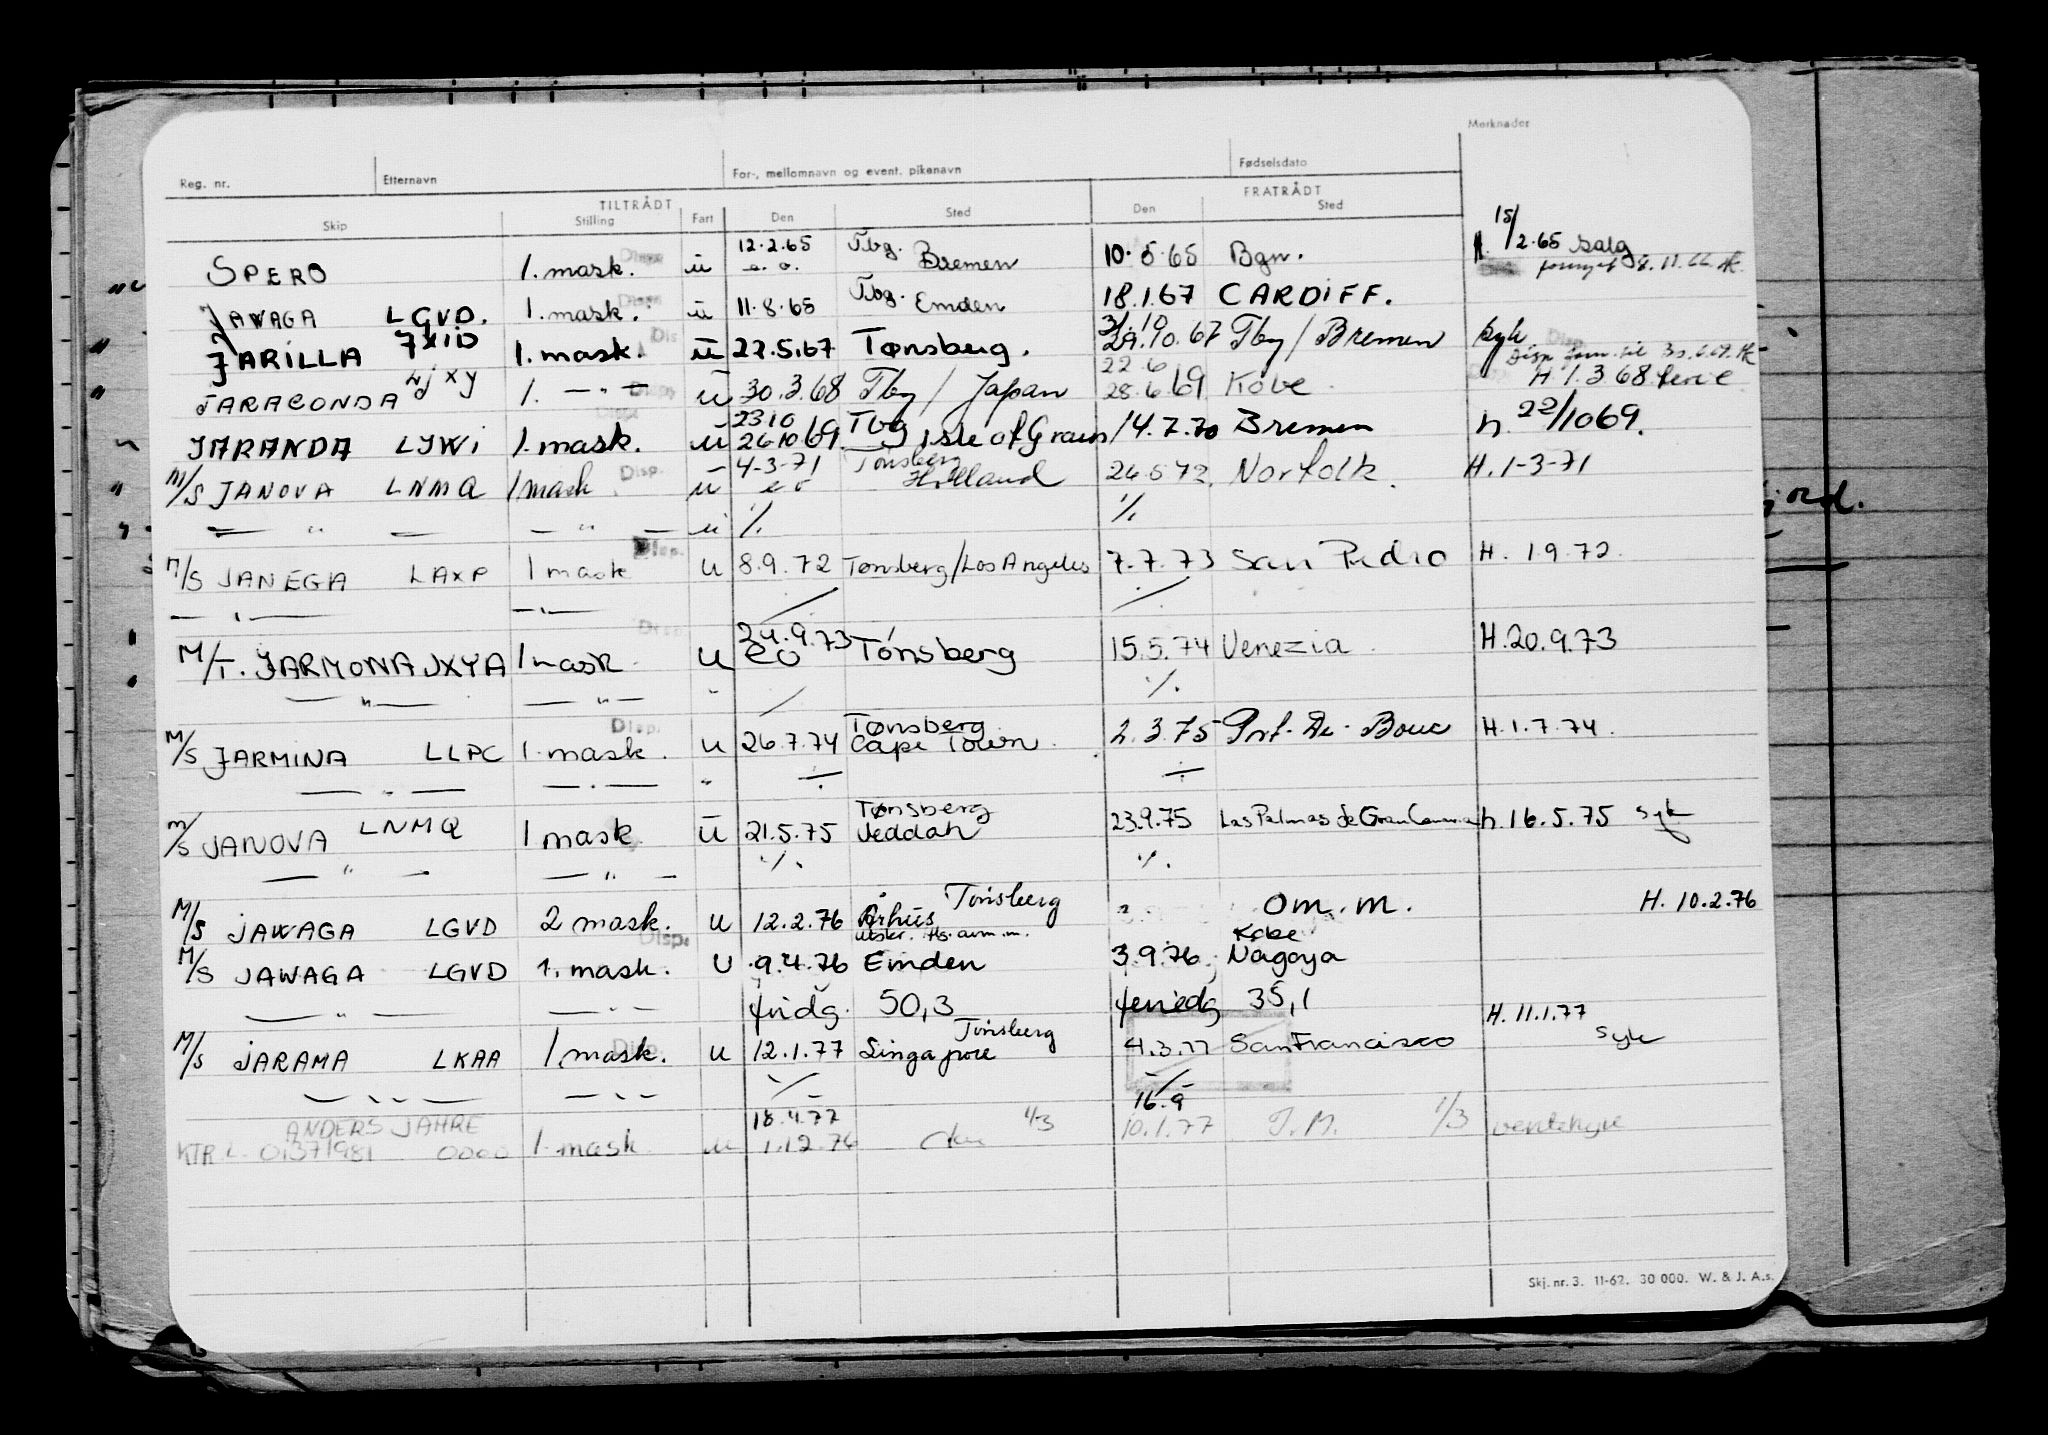 Merknader
Reg. nr. Etternavn For-, mellomnavn og event. pikenavn Fødselsdato
TILTRÅDT FRATRÅDT
Skip Stilling Fart Den Sted Den Sted
SPERO 1. mask. Disp u 12.2.65 e.o. Tbg. Bremen 10.5.65 Bgn. 15/2.65 Salg
8.11.66
JAWAGA LGVD. 1. mask. Disp. u 11.8.65 Tbg. Emden 18.1.67 CARDIFF.
JARILLA JXID 1. mask. Dis u 22.5.67 Tønsberg. 10.67 Tbg / Bremen syk Disp
til 30.6.69
JARACONDA LJXY 1. — " — Disp u 30.3.68 Tbg / Japan 22.6 28.6.69 Kobe H 1.3 68 ferie
JARANDA LJWI 1. mask. u 2310 261069. Tbg Isle of Grain 14.7.70 Bremen h. 22/1069.
M/S JANOVA LNMQ 1 mask Disp. u 4-3-71 e o Tønsberg Holland 26.5.72. Norfolk. H. 1-3-71
— " — — " — u ./. ./.
M/S JANEGA LAXP 1 mask Disp. u 8.9.72 Tønsberg/Los Angeles 7.7.73 San Pedro H. 1.9.72.
— " — — " — ./. ./.
M/T. JARMONA JXYA 1 mask Disp. u 24.9.73 eo Tønsberg 15.5.74 Venezia. H.20.9.73
— " — — " — " ./. ./.
M/S JARMINA LLPC 1. mask. Disp. u 26.7.74 Tønsberg Cape Town. 2.3.75 Port-De-Bouc H.1.7.74.
— " — — " — " ÷ ÷
M/S JANOVA LNMQ 1 mask u 21.5.75 Tønsberg Jeddah 23.9.75 Las Palmas de Gran Canaria h.16.5.75 syk
— " — — " — ./. ./.
M/S JAWAGA LGVD 2 mask. Disp. u 12.2.76 Århus Tønsberg om.m. H. 10.2.76
utskr.
M/S JAWAGA LGVD 1. mask. U 9.4.76 Emden 3.9.76. Kobe Nagoya
— " — — " — fridg. 50,3 feriedg 35,1
M/S JARAMA LKAA 1. mask. Disp. u 12.1.77 Singapore Tønsberg 4.3.77 San Francisco H. 11.1.77 syk
— " — — " — ./. ./.
ANDERS JAHRE 18.4.77 16.9
KTR L. 01371981 0000 1. mask u 1.12.76 1/3 10.1.77 T.M. 1/3 ventehyre
Skj. nr. 3. 11-62. 30 000. W. & J. A.s.